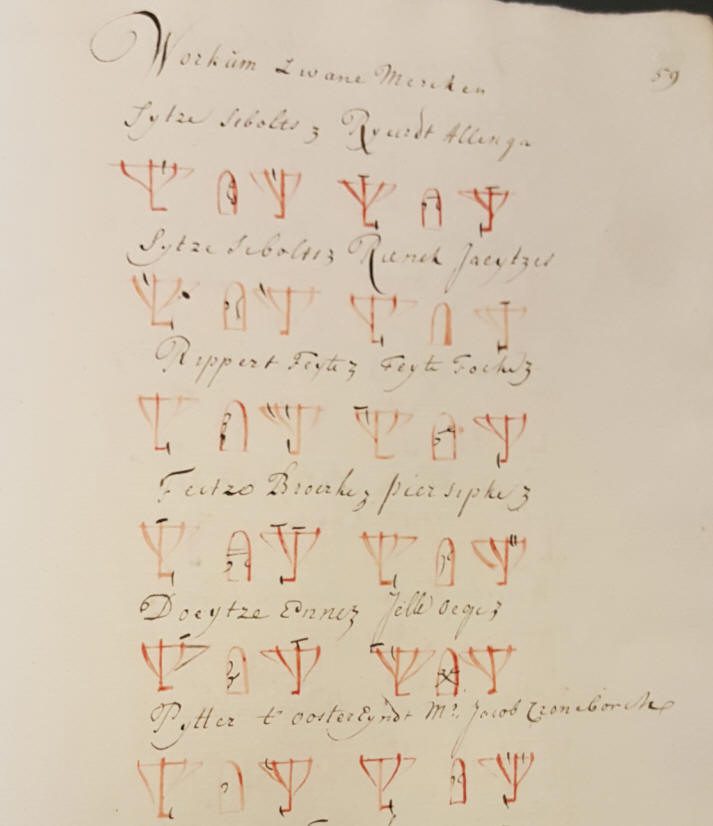 Workùm Zwane Mercken
59
Sytze Sibolts z Ryurdt Allenga
Sytze Siboltsz Rienck Jaeytzes
Rippert Feytez Feyte Fockez
Feitzo Broerkez pier sipkez
Doeytze Ennez Jelle oegez
Pytter t' oosterEyndt Mr. Jacob Croneborch